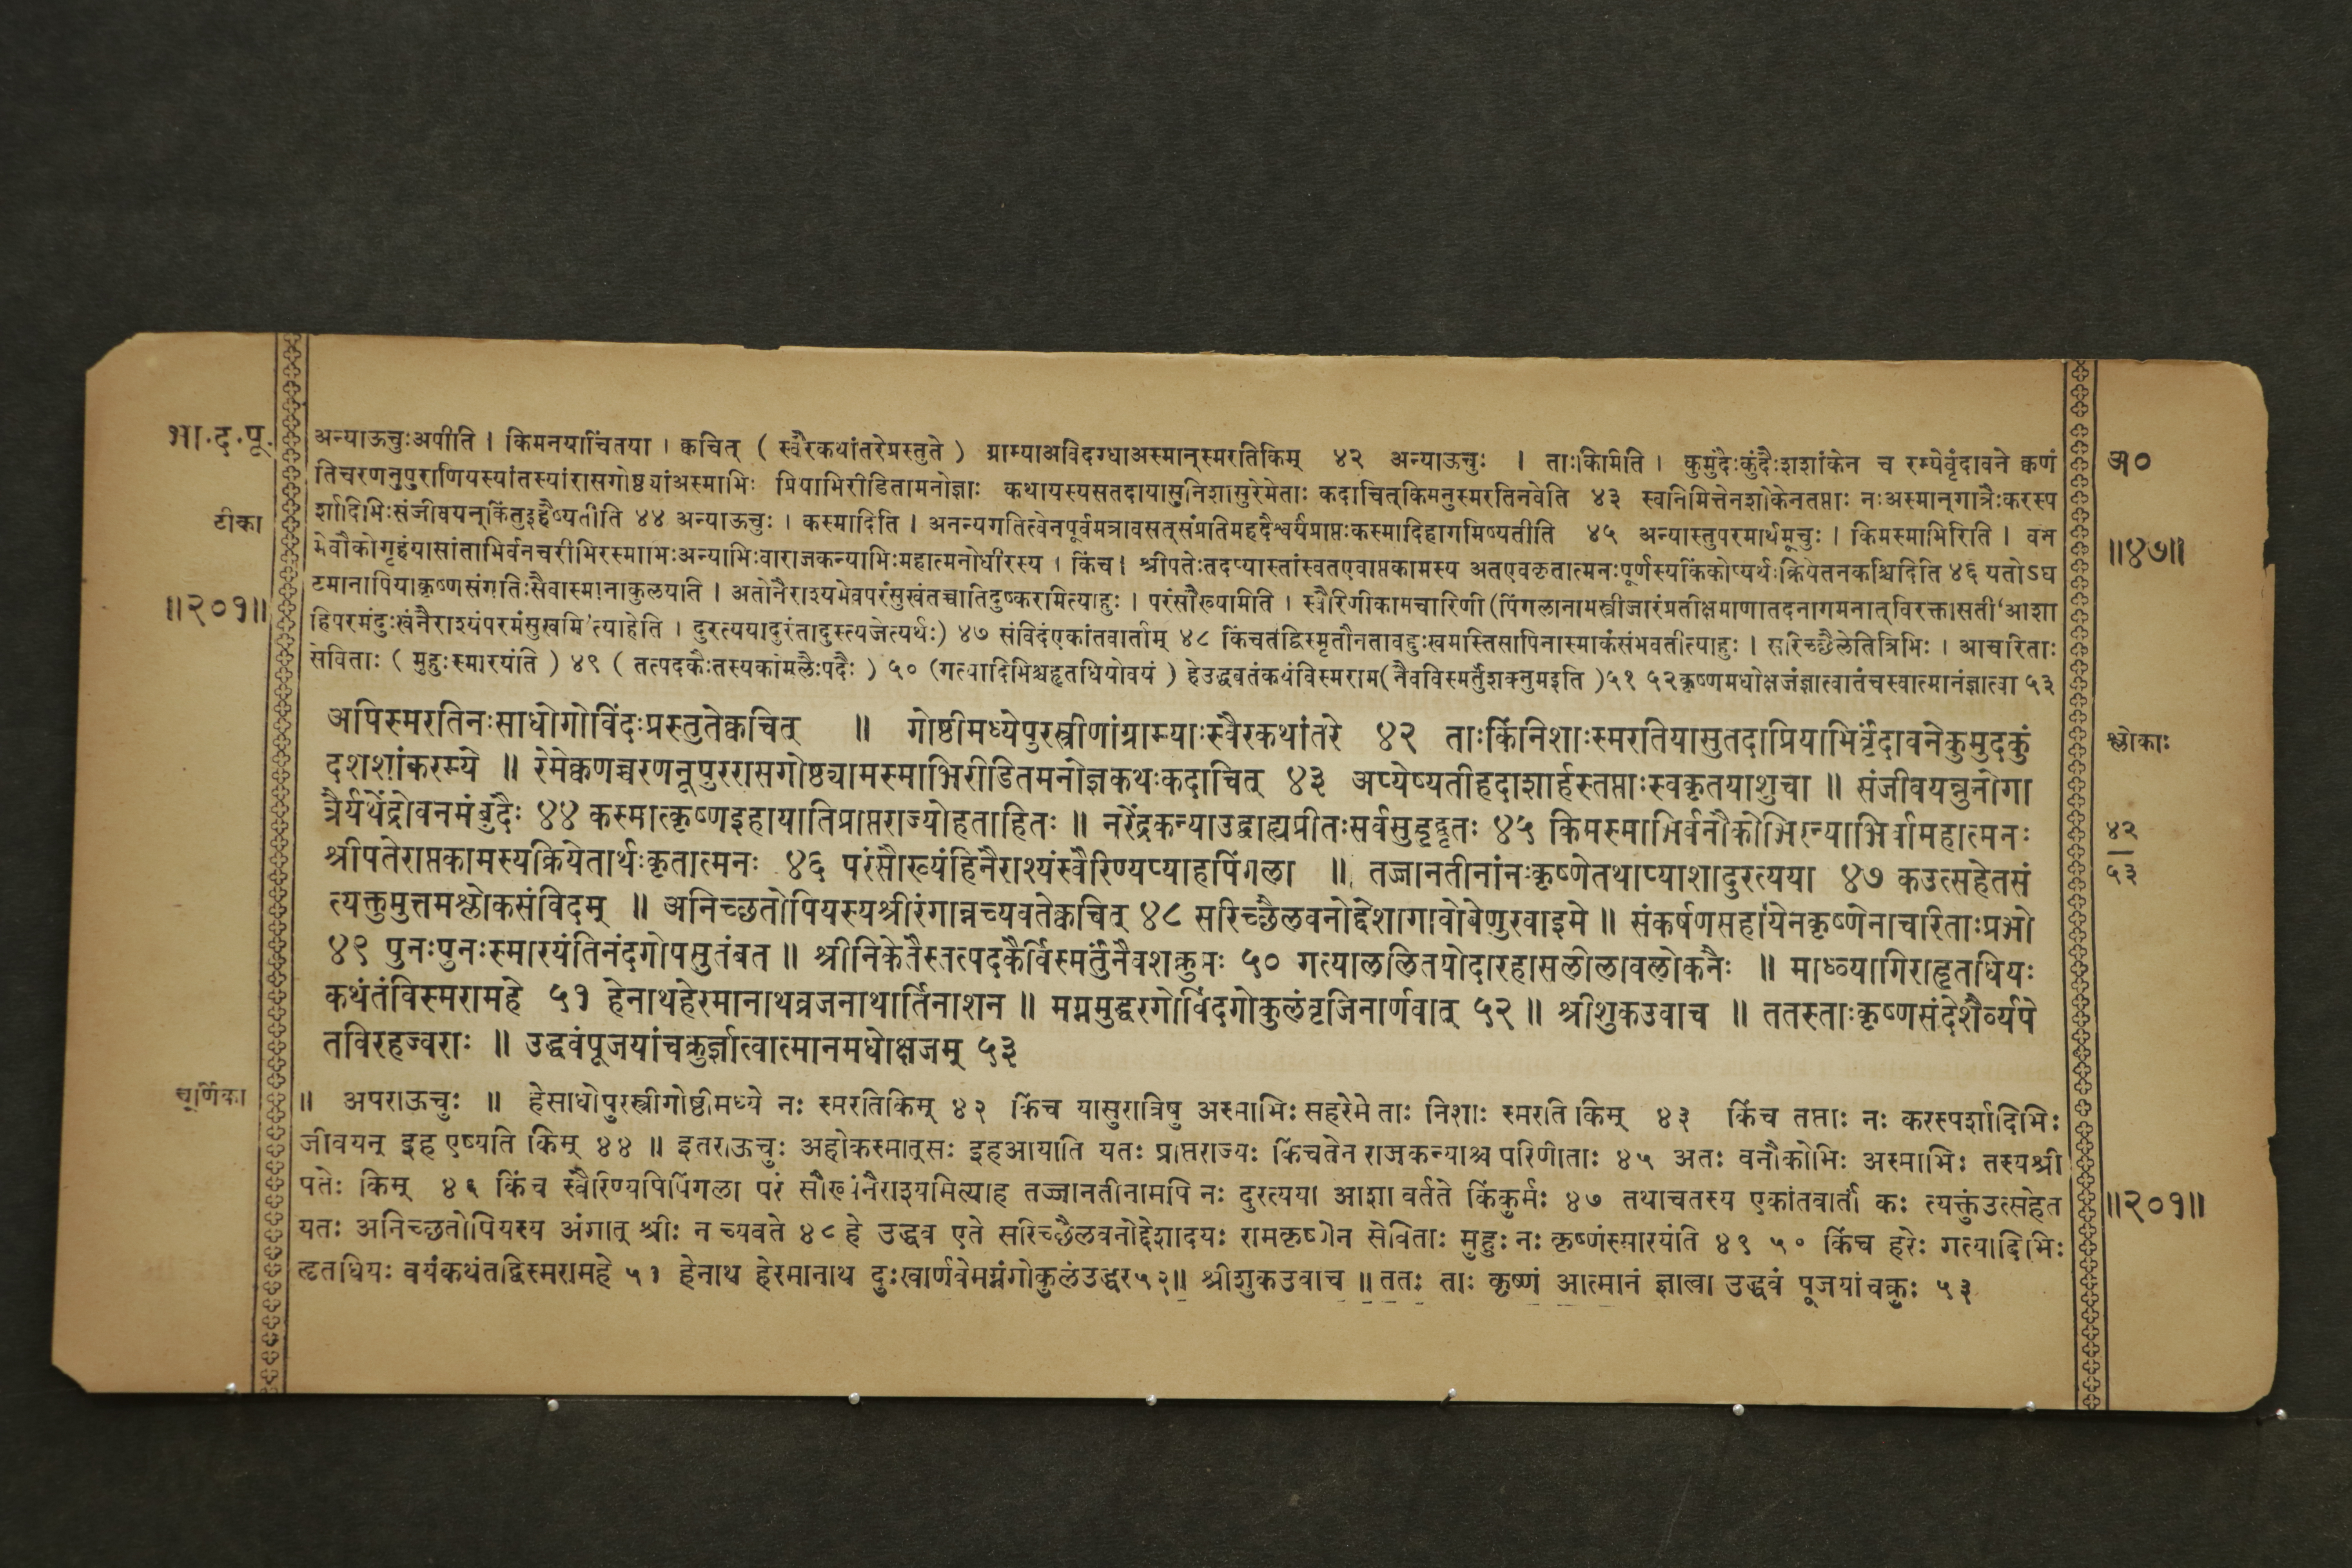 भा.द.पू.
अन्याऊचुःअपीति । किमनयाचिंतया । क्वचित् ( स्वैरकथांतरेप्रस्तुते ) ग्राम्याअविदग्धाअस्मान्स्मरतिकिम् ४२ अन्याऊचुः । ताःकिमिति । कुमुदैःकुंदैःशशांकेन च रम्येवृंदावने क्वणं
तिचरणनूपुराणियस्यांतस्यांरासगोष्ठ्यांअस्माभिः प्रियाभिरीडितामनोज्ञाः कथायस्यसतदायासुनिशासुरेमेताः कदाचित्किमनुस्मरतिनवेति ४३ स्वनिमित्तेनशोकेनतप्ताः नःअस्मान्गात्रैःकरस्प
र्शादिभिःसंजीवयन्किंतुइहैष्यतीति ४४ अन्याऊचुः । कस्मादिति । अनन्यगतित्वेनपूर्वमत्रावसत्संप्रतिमहदैश्वर्यंप्राप्तःकस्मादिहागमिष्यतीति ४५ अन्यास्तुपरमार्थमूचुः । किमस्माभिरिति । वन
मेवौकोगृहंयासांताभिर्वनचरीभिरस्माभिःअन्याभिःवाराजकन्याभिःमहात्मनोधीरस्य । किंच । श्रीपतेःतदप्यास्तांस्वतएवाप्तकामस्य अतएवकृतात्मनःपूर्णस्यकिंकोप्यर्थःक्रियेतनकश्चिदिति ४६ यतोऽघ
टमानापियाकृष्णसंगतिःसैवास्मानाकुलयति । अतोनैराश्यमेवपरंसुखंतच्चातिदुष्करमित्याहुः । परंसौख्यमिति । स्वैरिणीकामचारिणी (पिंगलानामस्त्रीजारंप्रतीक्षमाणातदनागमनात्विरक्तासती‘आशा
हिपरमंदुःखंनैराश्यंपरमंसुखमि’त्याहेति । दुरत्ययादुरंतादुस्त्यजेत्यर्थः) ४७ संविदंएकांतवार्ताम् ४८ किंचतद्विस्मृतौनतावद्दुःखमस्तिसापिनास्माकंसंभवतीत्याहुः । सरिच्छैलेतित्रिभिः । आचरिताः
सेविताः ( मुहुःस्मारयंति ) ४९ ( तत्पदकैःतस्यकोमलैःपदैः ) ५० (गत्यादिभिश्चहृतधियोवयं ) हेउद्धवतंकथंविस्मराम(नैवविस्मर्तुंशक्नुमइति )५१ ५२कृष्णमधोक्षजंज्ञात्वातंचस्वात्मानंज्ञात्वा ५३
टीका
॥२०१॥
अ०
॥४७॥
अपिस्मरतिनःसाधोगोविंदःप्रस्तुतेक्वचित् ॥ गोष्ठीमध्येपुरस्त्रीणांग्राम्याःस्वैरकथांतरे ४२ ताःकिंनिशाःस्मरतियासुतदाप्रियाभिर्वृंदावनेकुमुदकुं
दशशांकरम्ये ॥ रेमेक्वणच्चरणनूपुररासगोष्ठ्यामस्माभिरीडितमनोज्ञकथःकदाचित् ४३ अप्येष्यतीहदाशार्हस्तप्ताःस्वकृतयाशुचा ॥ संजीवयन्नुनोगा
त्रैर्यथेंद्रोवनमंबुदैः ४४ कस्मात्कृष्णइहायातिप्राप्तराज्योहताहितः ॥ नरेंद्रकन्याउद्वाह्यप्रीतःसर्वसुहृद्वृतः ४५ किमस्माभिर्वनौकोभिरन्याभिर्वामहात्मनः
श्रीपतेराप्तकामस्यक्रियेतार्थःकृतात्मनः ४६ परंसौख्यंहिनैराश्यंस्वैरिण्यप्याहपिंगला ॥ तज्जानतीनांनःकृष्णेतथाप्याशादुरत्यया ४७ कउत्सहेतसं
त्यक्तुमुत्तमश्लोकसंविदम् ॥ अनिच्छतोपियस्यश्रीरंगान्नच्यवतेक्वचित् ४८ सरिच्छैलवनोद्देशागावोवेणुरवाइमे ॥ संकर्षणसहायेनकृष्णेनाचरिताःप्रभो
४९ पुनःपुनःस्मारयंतिनंदगोपसुतंबत ॥ श्रीनिकेतैस्तत्पदकैर्विस्मर्तुंनैवशक्नुमः ५० गत्याललितयोदारहासलीलावलोकनैः ॥ माध्व्यागिराहृतधियः
कथंतंविस्मरामहे ५१ हेनाथहेरमानाथव्रजनाथार्तिनाशन ॥ मग्नमुद्धरगोविंदगोकुलंवृजिनार्णवात् ५२ ॥ श्रीशुकउवाच ॥ ततस्ताःकृष्णसंदेशैर्व्यपे
तविरहज्वराः ॥ उद्धवंपूजयांचक्रुर्ज्ञात्वात्मानमधोक्षजम् ५३
श्लोकाः
४२
५३
चूर्णिका
॥ अपराऊचुः ॥ हेसाधोपुरस्त्रीगोष्ठीमध्ये नः स्मरतिकिम् ४२ किंच यासुरात्रिषु अस्माभिः सहरेमे ताः निशाः स्मरति किम् ४३ किंच तप्ताः नः करस्पर्शादिभिः
जीवयन् इह एष्यति किम् ४४ ॥ इतराऊचुः अहोकस्मात्सः इहआयाति यतः प्राप्तराज्यः किंचतेन राजकन्याश्च परिणीताः ४५ अतः वनौकोभिः अस्माभिः तस्यश्री
पतेः किम् ४६ किंच स्वैरिण्यपिपिंगला परं सौख्यंनैराश्यमित्याह तज्जानतीनामपि नः दुरत्यया आशा वर्तते किंकुर्मः ४७ तथाचतस्य एकांतवार्तां कः त्यक्तुंउत्सहेत
यतः अनिच्छतोपियस्य अंगात् श्रीः न च्यवते ४८ हे उद्धव एते सरिच्छैलवनोद्देशादयः रामकृष्णेन सेविताः मुहुः नः कृष्णंस्मारयंति ४९ ५० किंच हरेः गत्यादिभिः
हृतधियः वयंकथंतद्विस्मरामहे ५१ हेनाथ हेरमानाथ दुःखार्णवेमग्नंगोकुलंउद्धर५२॥ श्रीशुकउवाच ॥ ततः ताः कृष्णं आत्मानं ज्ञात्वा उद्धवं पूजयांचक्रुः ५३
॥२०१॥